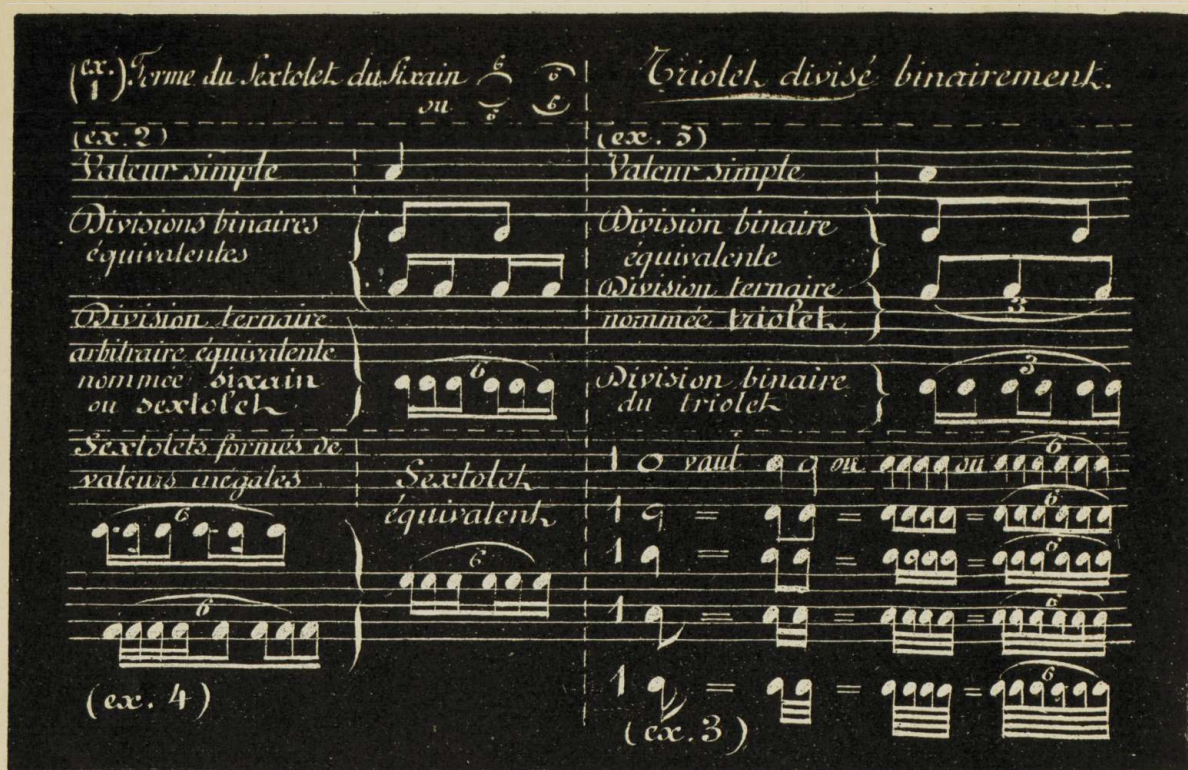 (ex. 1) Forme du Sextolet du Sixain 6 6
ou 6 6
(ex. 2)
Valeur simple
Divisions binaires
équivalentes
Division ternaire
arbitraire équivalente
nommée sixain
ou sextolet
6
Sextolets formés de
valeurs inégales
Sextolet
équivalent
6
6
6
(ex. 4)
Triolet divisé binairement.
(ex. 5)
Valeur simple
Division binaire
équivalente
Division ternaire
nommée triolet
3
Division binaire
du triolet
3
1 vaut ou ou 6
1 = = = 6
1 = = = 6
1 = = = 6
1 = = = 6
(ex. 3)